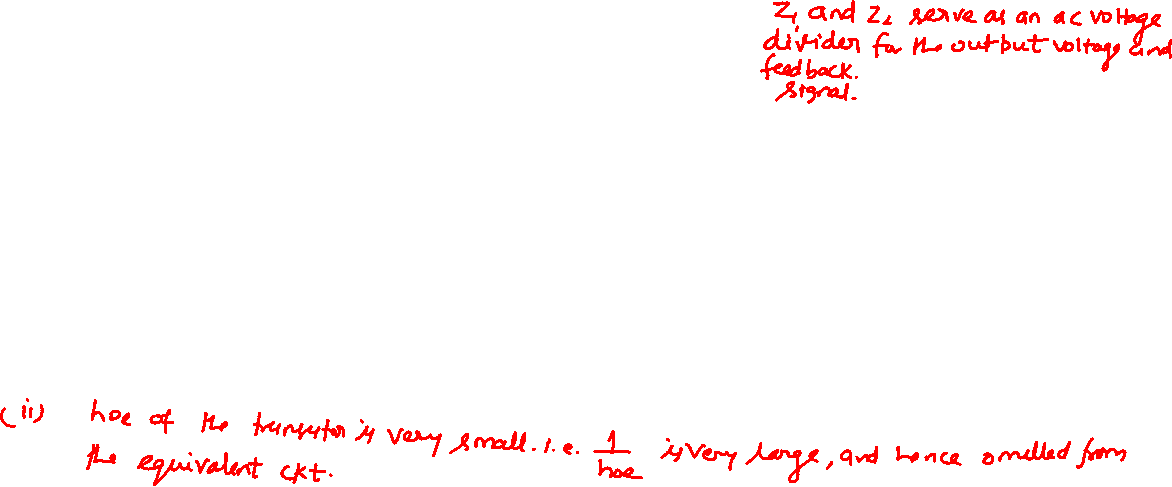 Z₁ and Z₂ serve as an ac voltage
divider for the output voltage and
feedback.
signal.
(ii) hoe of the transistor is very small. i.e. 1/hoe is very large, and hence omitted from
the equivalent ckt.